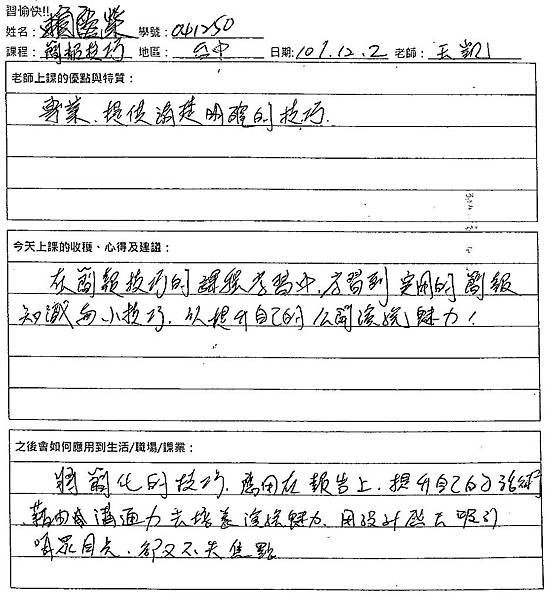 習愉快!!
姓名： 賴 榮 學號： 041250
課程： 簡報技巧 地區： 台中 日期: 109.12.2 老師： 王凱
老師上課的優點與特質：
專業、提供清楚明確的技巧.
今天上課的收穫、心得及建議：
在簡報技巧的課程學習中,學習到實用的簡報
知識與小技巧,以提升自己的公開演說魅力!
之後會如何應用到生活/職場/課業：
將簡化的技巧,應用在報告上,提升自己的
藉由 溝通力去培養演說魅力,用設計 去吸引
眾目光,卻又不失焦點